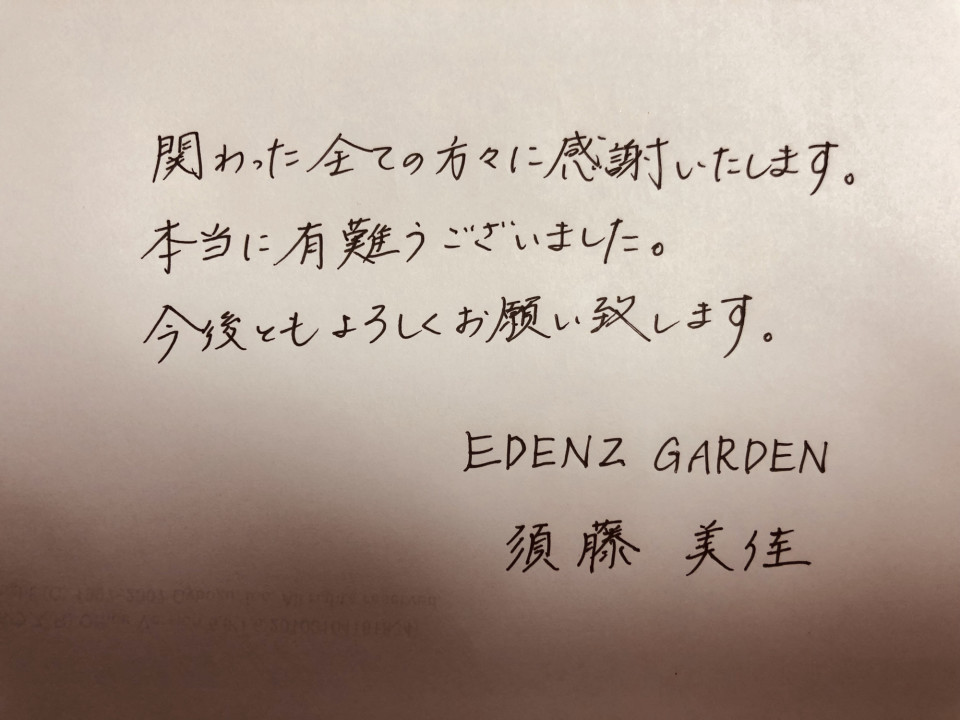 関わった全ての方々に感謝いたします。
本当に有難うございました。
今後ともよろしくお願い致します。
EDENZ GARDEN
須藤 美佳